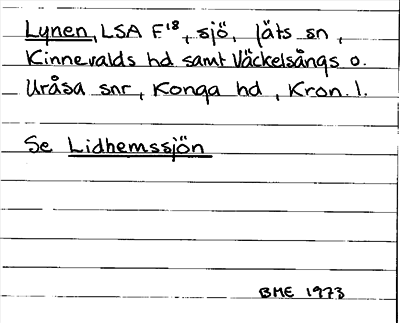 Lynen, LSA F18, sjö, Jäts sn,
Kinnevalds hd samt Väckelsångs o.
Uråsa snr, Konga hd, Kron. l.
Se Lidhemssjön
BME 1973